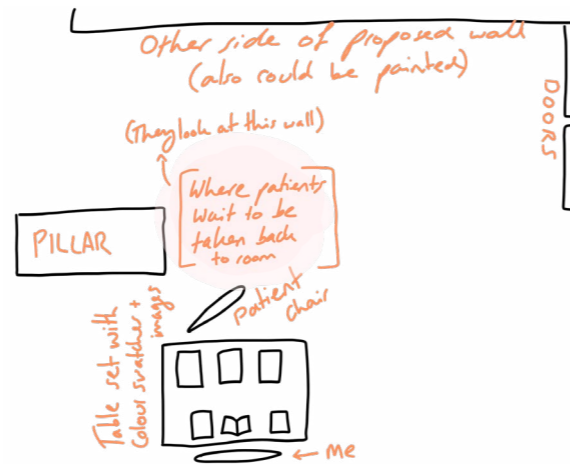 Other side of proposed wall
(also could be painted)
DOORS
(They look at this wall)
Where patients
wait to be
taken back
to room
PILLAR
patient
chair
Table set with
Colour swatches +
images
Me